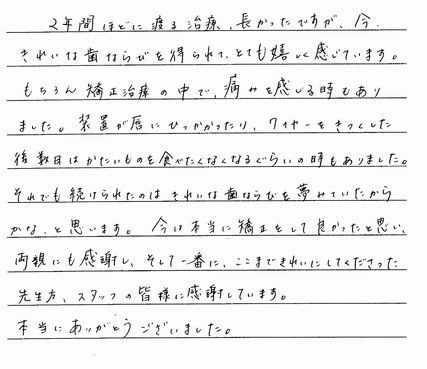 2年間ほどに渡る治療、長かったですが、今、
きれいな歯ならびを得られて、とても嬉しく感じています。
もちろん矯正治療の中で、痛みを感じる時もあり
ました。装置が唇にひっかかったり、ワイヤーをきつくした
後数日はかたいものを食べたくなくなるぐらいの時もありました。
それでも続けられたのはきれいな歯ならびを夢みていたから
かな、と思います。今は本当に矯正をして良かったと思い、
両親にも感謝し、そして一番に、ここまできれいにしてくださった
先生方、スタッフの皆様に感謝しています。
本当にありがとうございました。